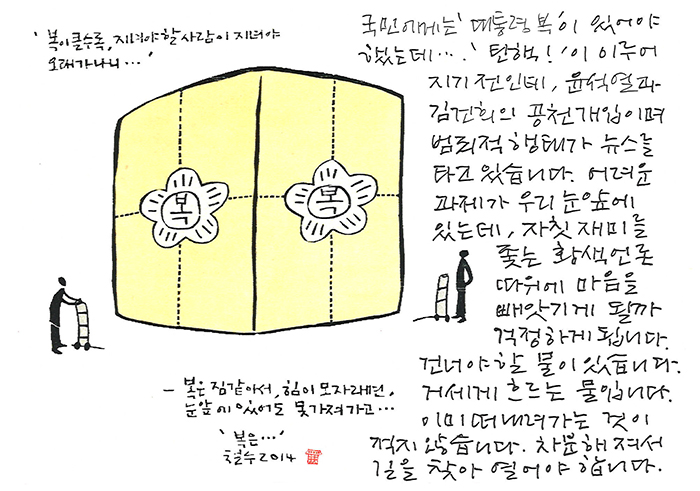 '복이클수록, 지녀야할사람이지녀야
오래가나니…'
복
복
– 복은짐같아서, 힘이모자래면,
눈앞에있어도못가져가고…
'복은…'
철수2014
국민에게는'대통령복'이 있어야
했는데….'탄핵!'이 이루어
지기전인데, 윤석열과
김건희의 공천개입이며
범죄적행태가 뉴스를
타고있습니다. 어려운
과제가 우리눈앞에
있는데, 자칫 재미를
좇는 황색언론
따위에 마음을
빼앗기게 될까
걱정하게됩니다.
건너야할 물이있습니다.
거세게흐르는 물입니다.
이미떠내려가는 것이
적지않습니다. 차분해져서
길을 찾아 열어야합니다.